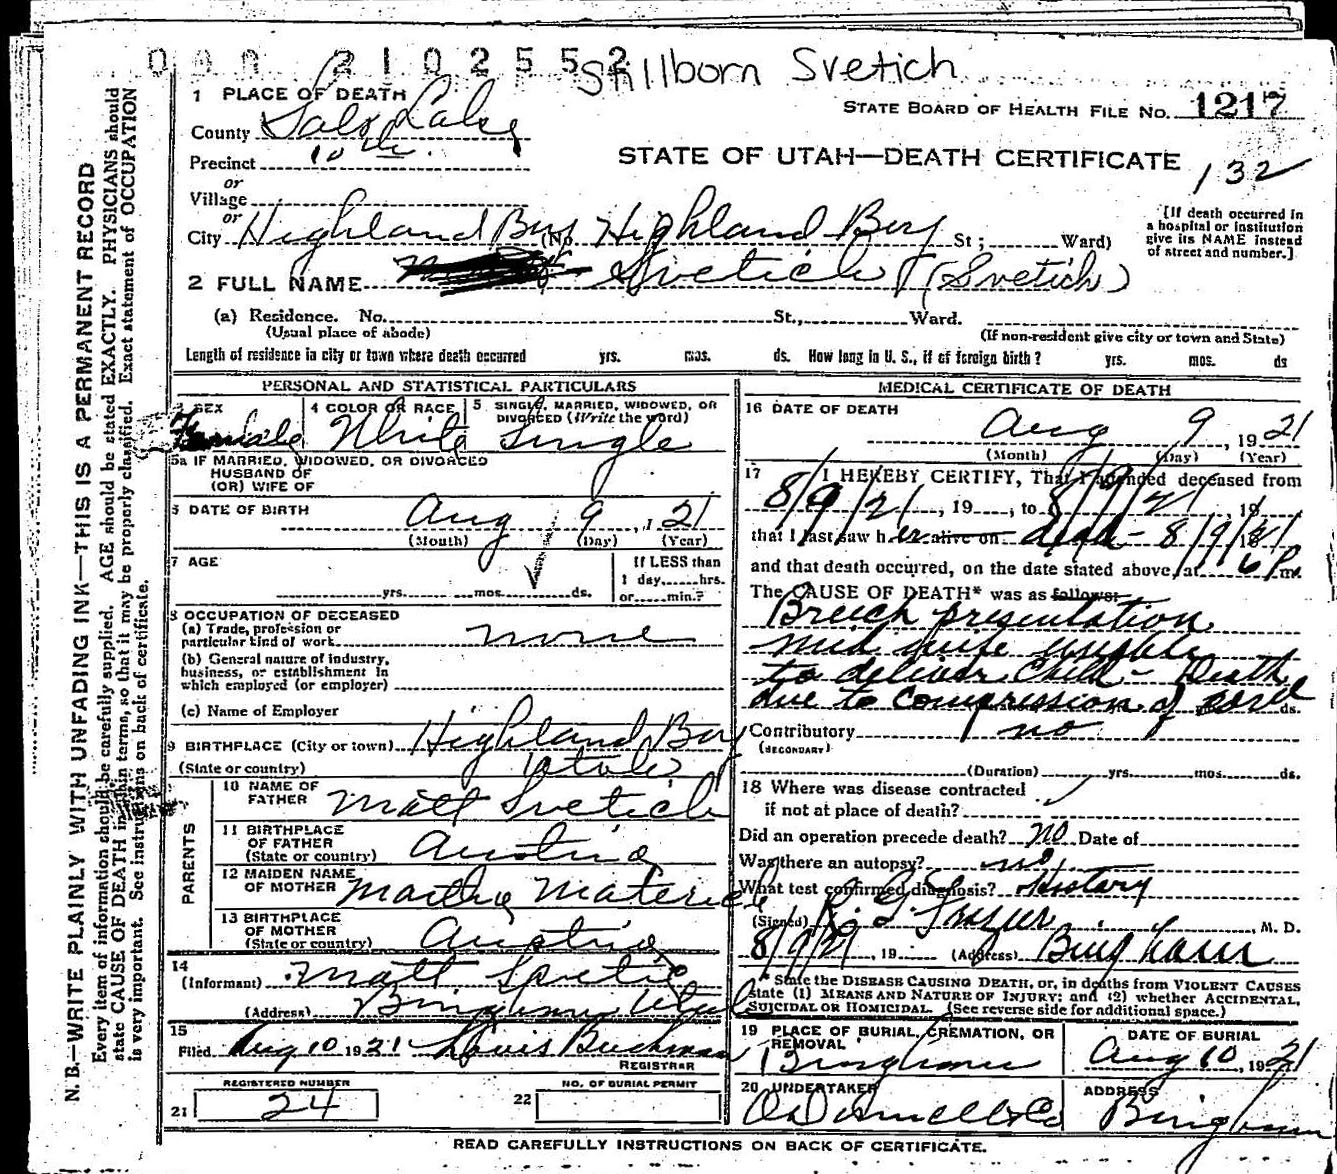 000 210255 2
Stillborn Svetich
1 PLACE OF DEATH
STATE BOARD OF HEALTH FILE NO. 1217
County Salt Lake
Precinct 10th.
STATE OF UTAH—DEATH CERTIFICATE
132
or
Village
or
City Highland Boy (No. Highland Boy St; Ward)
[If death occurred in a hospital or institution give its NAME instead of street and number.]
2 FULL NAME Svetich (Svetich)
(a) Residence. No. St., Ward.
(Usual place of abode)
(If non-resident give city or town and State)
Length of residence in city or town where death occurred yrs. mos. ds. How long in U. S., if of foreign birth? yrs. mos. ds
PERSONAL AND STATISTICAL PARTICULARS
3 SEX
Female
4 COLOR OR RACE
White
5 SINGLE, MARRIED, WIDOWED, OR DIVORCED (Write the word)
Single
5a IF MARRIED, WIDOWED, OR DIVORCED
HUSBAND OF
(OR) WIFE OF
6 DATE OF BIRTH
Aug 9, 1 21
(Month) (Day) (Year)
7 AGE
yrs. mos. ds.
If LESS than
1 day, hrs.
or min.?
8 OCCUPATION OF DECEASED
(a) Trade, profession or
particular kind of work none
(b) General nature of industry,
business, or establishment in
which employed (or employer)
(c) Name of Employer
9 BIRTHPLACE (City or town) Highland Boy
(State or country) Utah
PARENTS
10 NAME OF
FATHER Matt Svetich
11 BIRTHPLACE
OF FATHER
(State or country) Austria
12 MAIDEN NAME
OF MOTHER MarthaАаterich
13 BIRTHPLACE
OF MOTHER
(State or country) Austria
14
(Informant) Matt Svetic
(Address) Bingham Utah
15
Filed Aug 10 1921 Louis Buchman
REGISTRAR
REGISTERED NUMBER
21 24
NO. OF BURIAL PERMIT
22
MEDICAL CERTIFICATE OF DEATH
16 DATE OF DEATH
Aug 9, 19 21
(Month) (Day) (Year)
17 I HEREBY CERTIFY, That I attended deceased from
8/9/21, 19, to 8/9/21, 19
that I last saw her alive on dead - 8/9/21
and that death occurred, on the date stated above, at 6 P m.
The CAUSE OF DEATH* was as follows:
Breech presentation
mid wife unable
to deliver child - Death
due to compression of cord
ds.
Contributory no
(SECONDARY)
(Duration) yrs. mos. ds.
18 Where was disease contracted
if not at place of death?
Did an operation precede death? no Date of
Was there an autopsy? no
What test confirmed diagnosis? History
(Signed) R. G. Frazier, M. D.
8/9/21, 19 (Address) Bingham
*State the DISEASE CAUSING DEATH, or, in deaths from VIOLENT CAUSES
state (1) MEANS AND NATURE OF INJURY; and (2) whether ACCIDENTAL,
SUICIDAL OR HOMICIDAL. (See reverse side for additional space.)
19 PLACE OF BURIAL, CREMATION, OR
REMOVAL
Bingham
DATE OF BURIAL
Aug 10, 1921
20 UNDERTAKER
O'Donnell & Co
ADDRESS
Bingham
READ CAREFULLY INSTRUCTIONS ON BACK OF CERTIFICATE.
N. B.—WRITE PLAINLY WITH UNFADING INK—THIS IS A PERMANENT RECORD
Every item of information should be carefully supplied. AGE should be stated EXACTLY. PHYSICIANS should
state CAUSE OF DEATH in plain terms, so that it may be properly classified. Exact statement of OCCUPATION
is very important. See instructions on back of certificate.